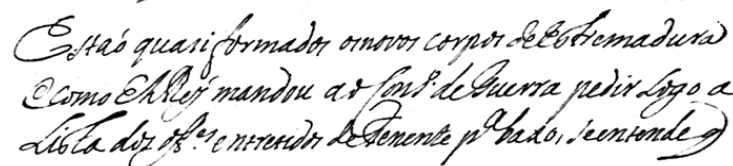 Estaõ quasi formados os novos corpos de Estremadura
e como ElRey mandou ao Cons.º de Guerra pedir logo a
Lista dos off.es entretidos de Tenente p.ª bado, se entende q